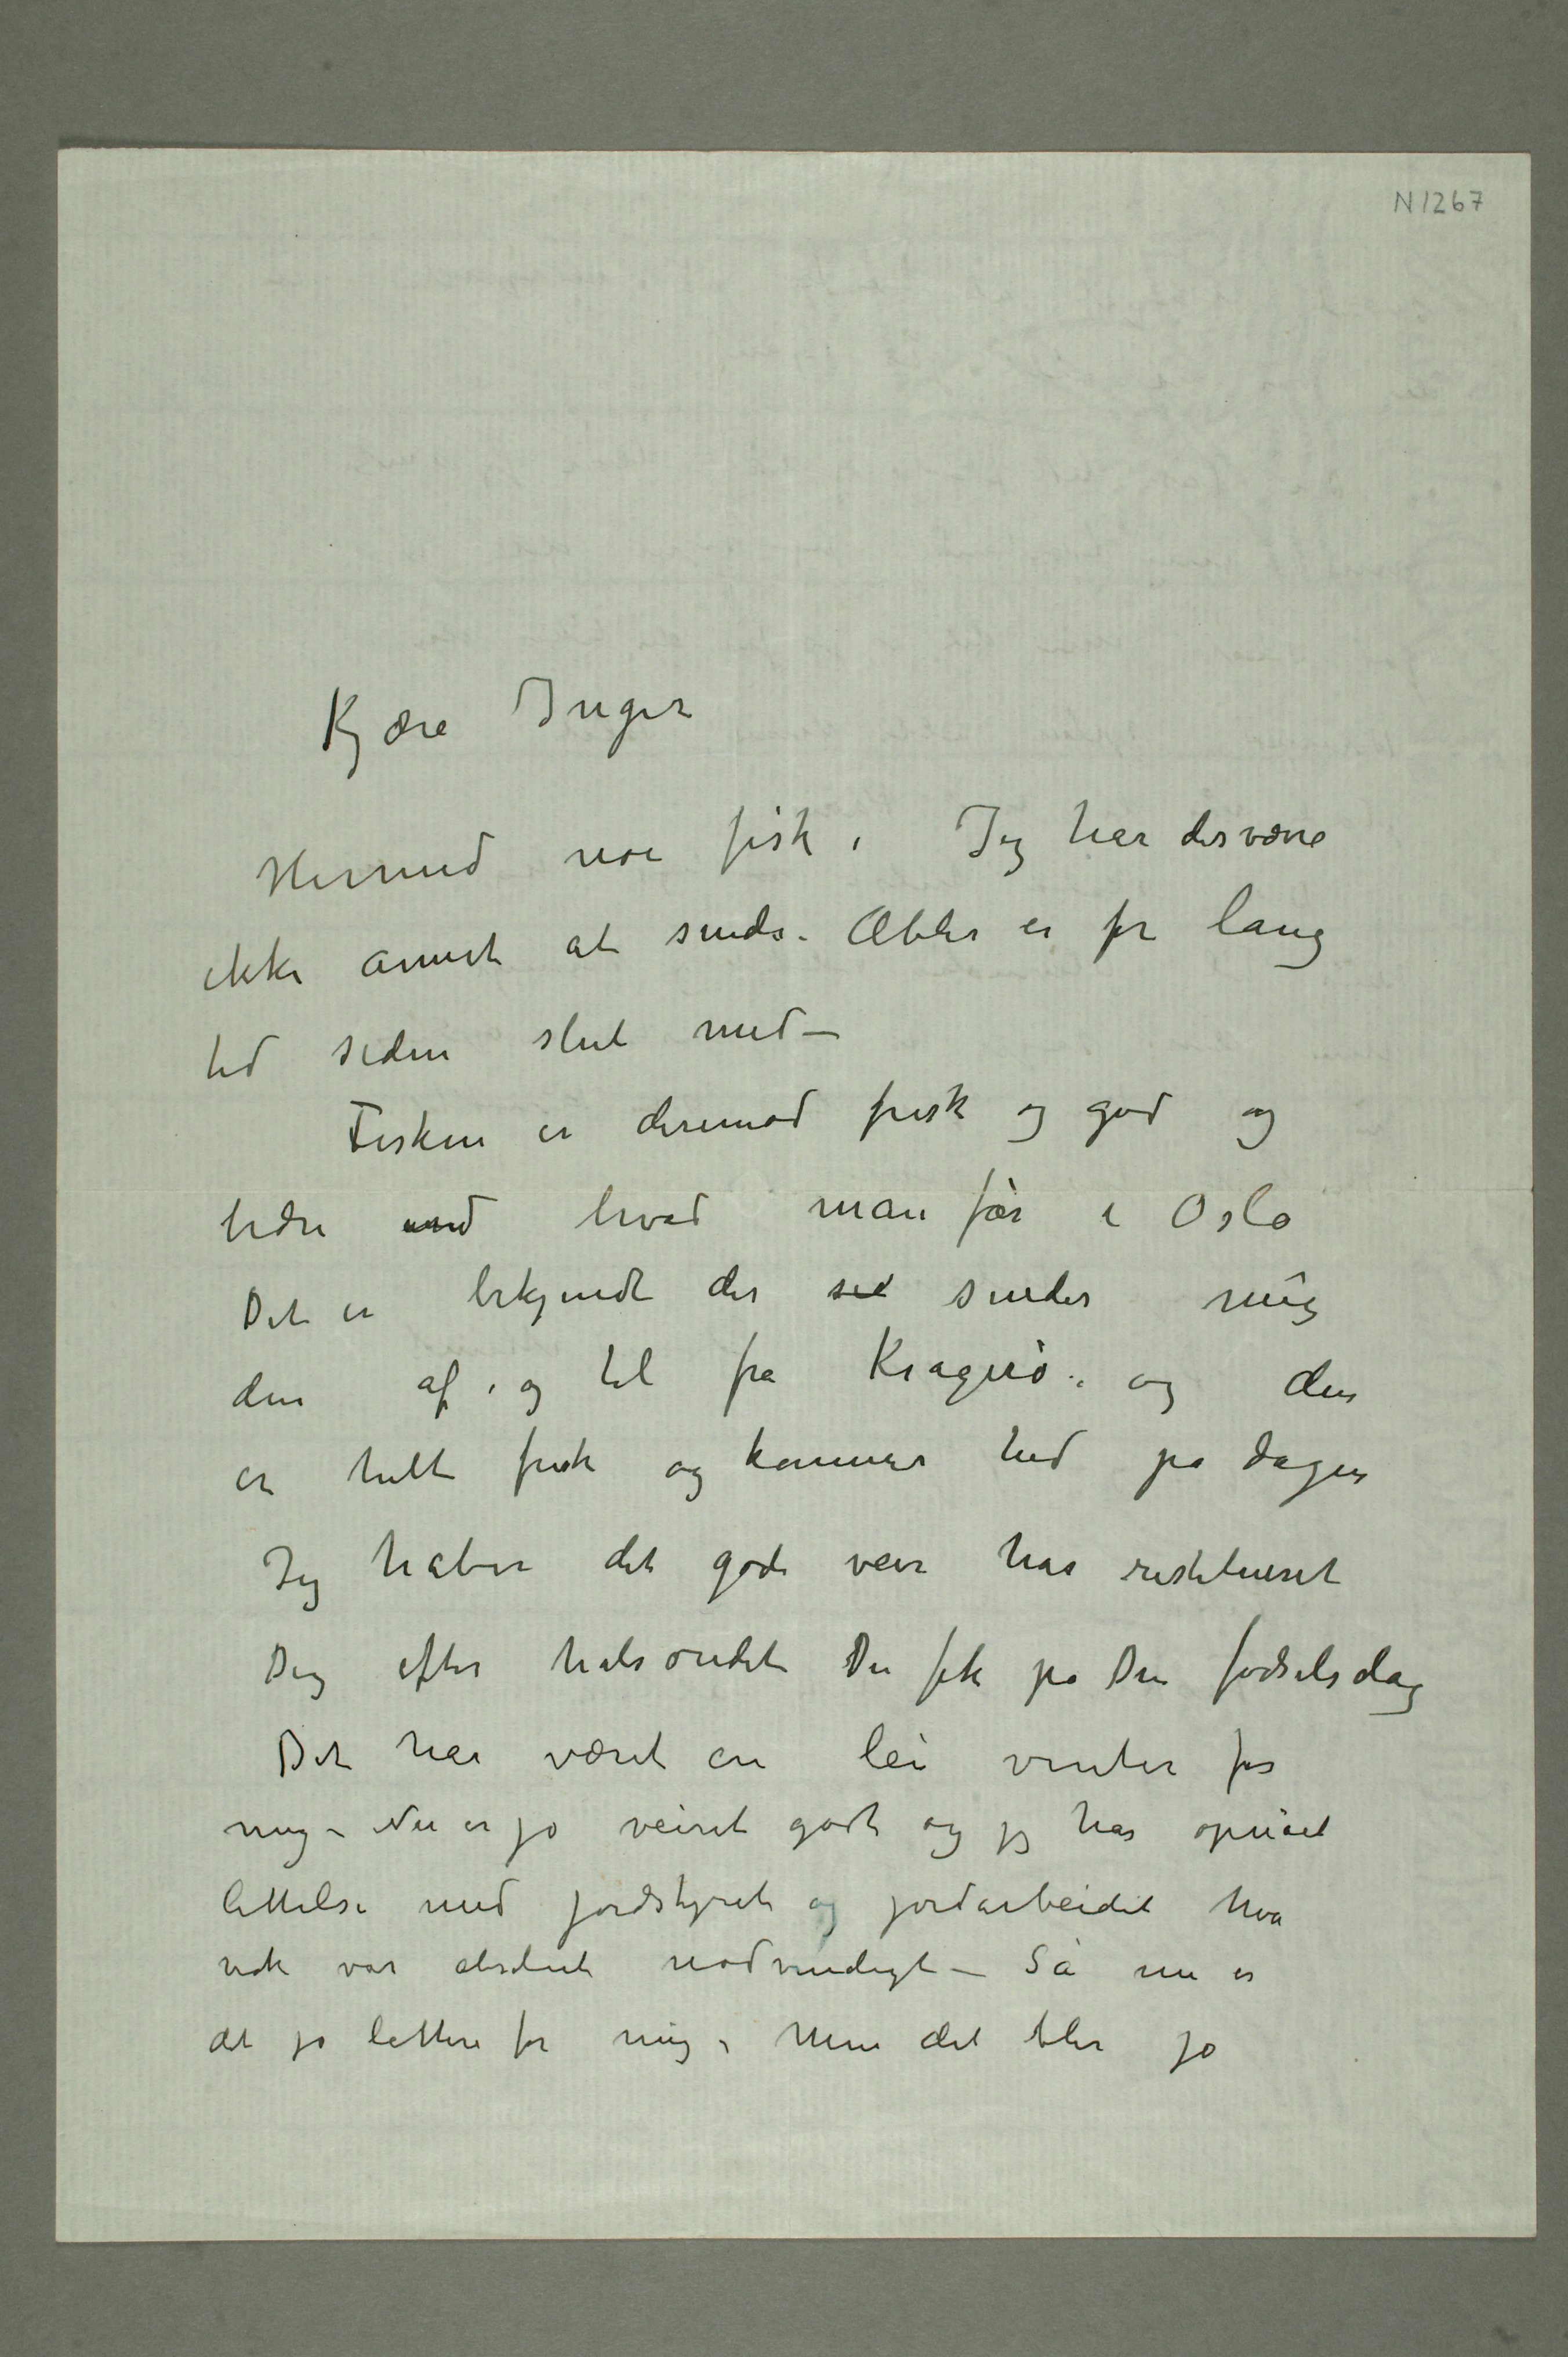 N 1267
Kjære Inger
Hermed noe fisk. Jeg har desværre
ikke annet at sende. Æbler er for lang
tid siden slut med –
Fisken er deremod frisk og god og
bedre end hvad man får i Oslo
Det er bekjendt der sed sender mig
den af og til fra Kragerö. og den
er helt frisk og kommer hid på dagen
Jeg håber det gode veir har restitueret
Dig efter halsondet Du fik på Din födselsdag
Det har været en lei vinter for
mig – Nu er jo veiret godt og jeg har opnået
lettelse med jordstyret og jordarbeidet hva
nok var absolut nödvendigt – Så nu er
det jo lettere for mig. Men det blir jo